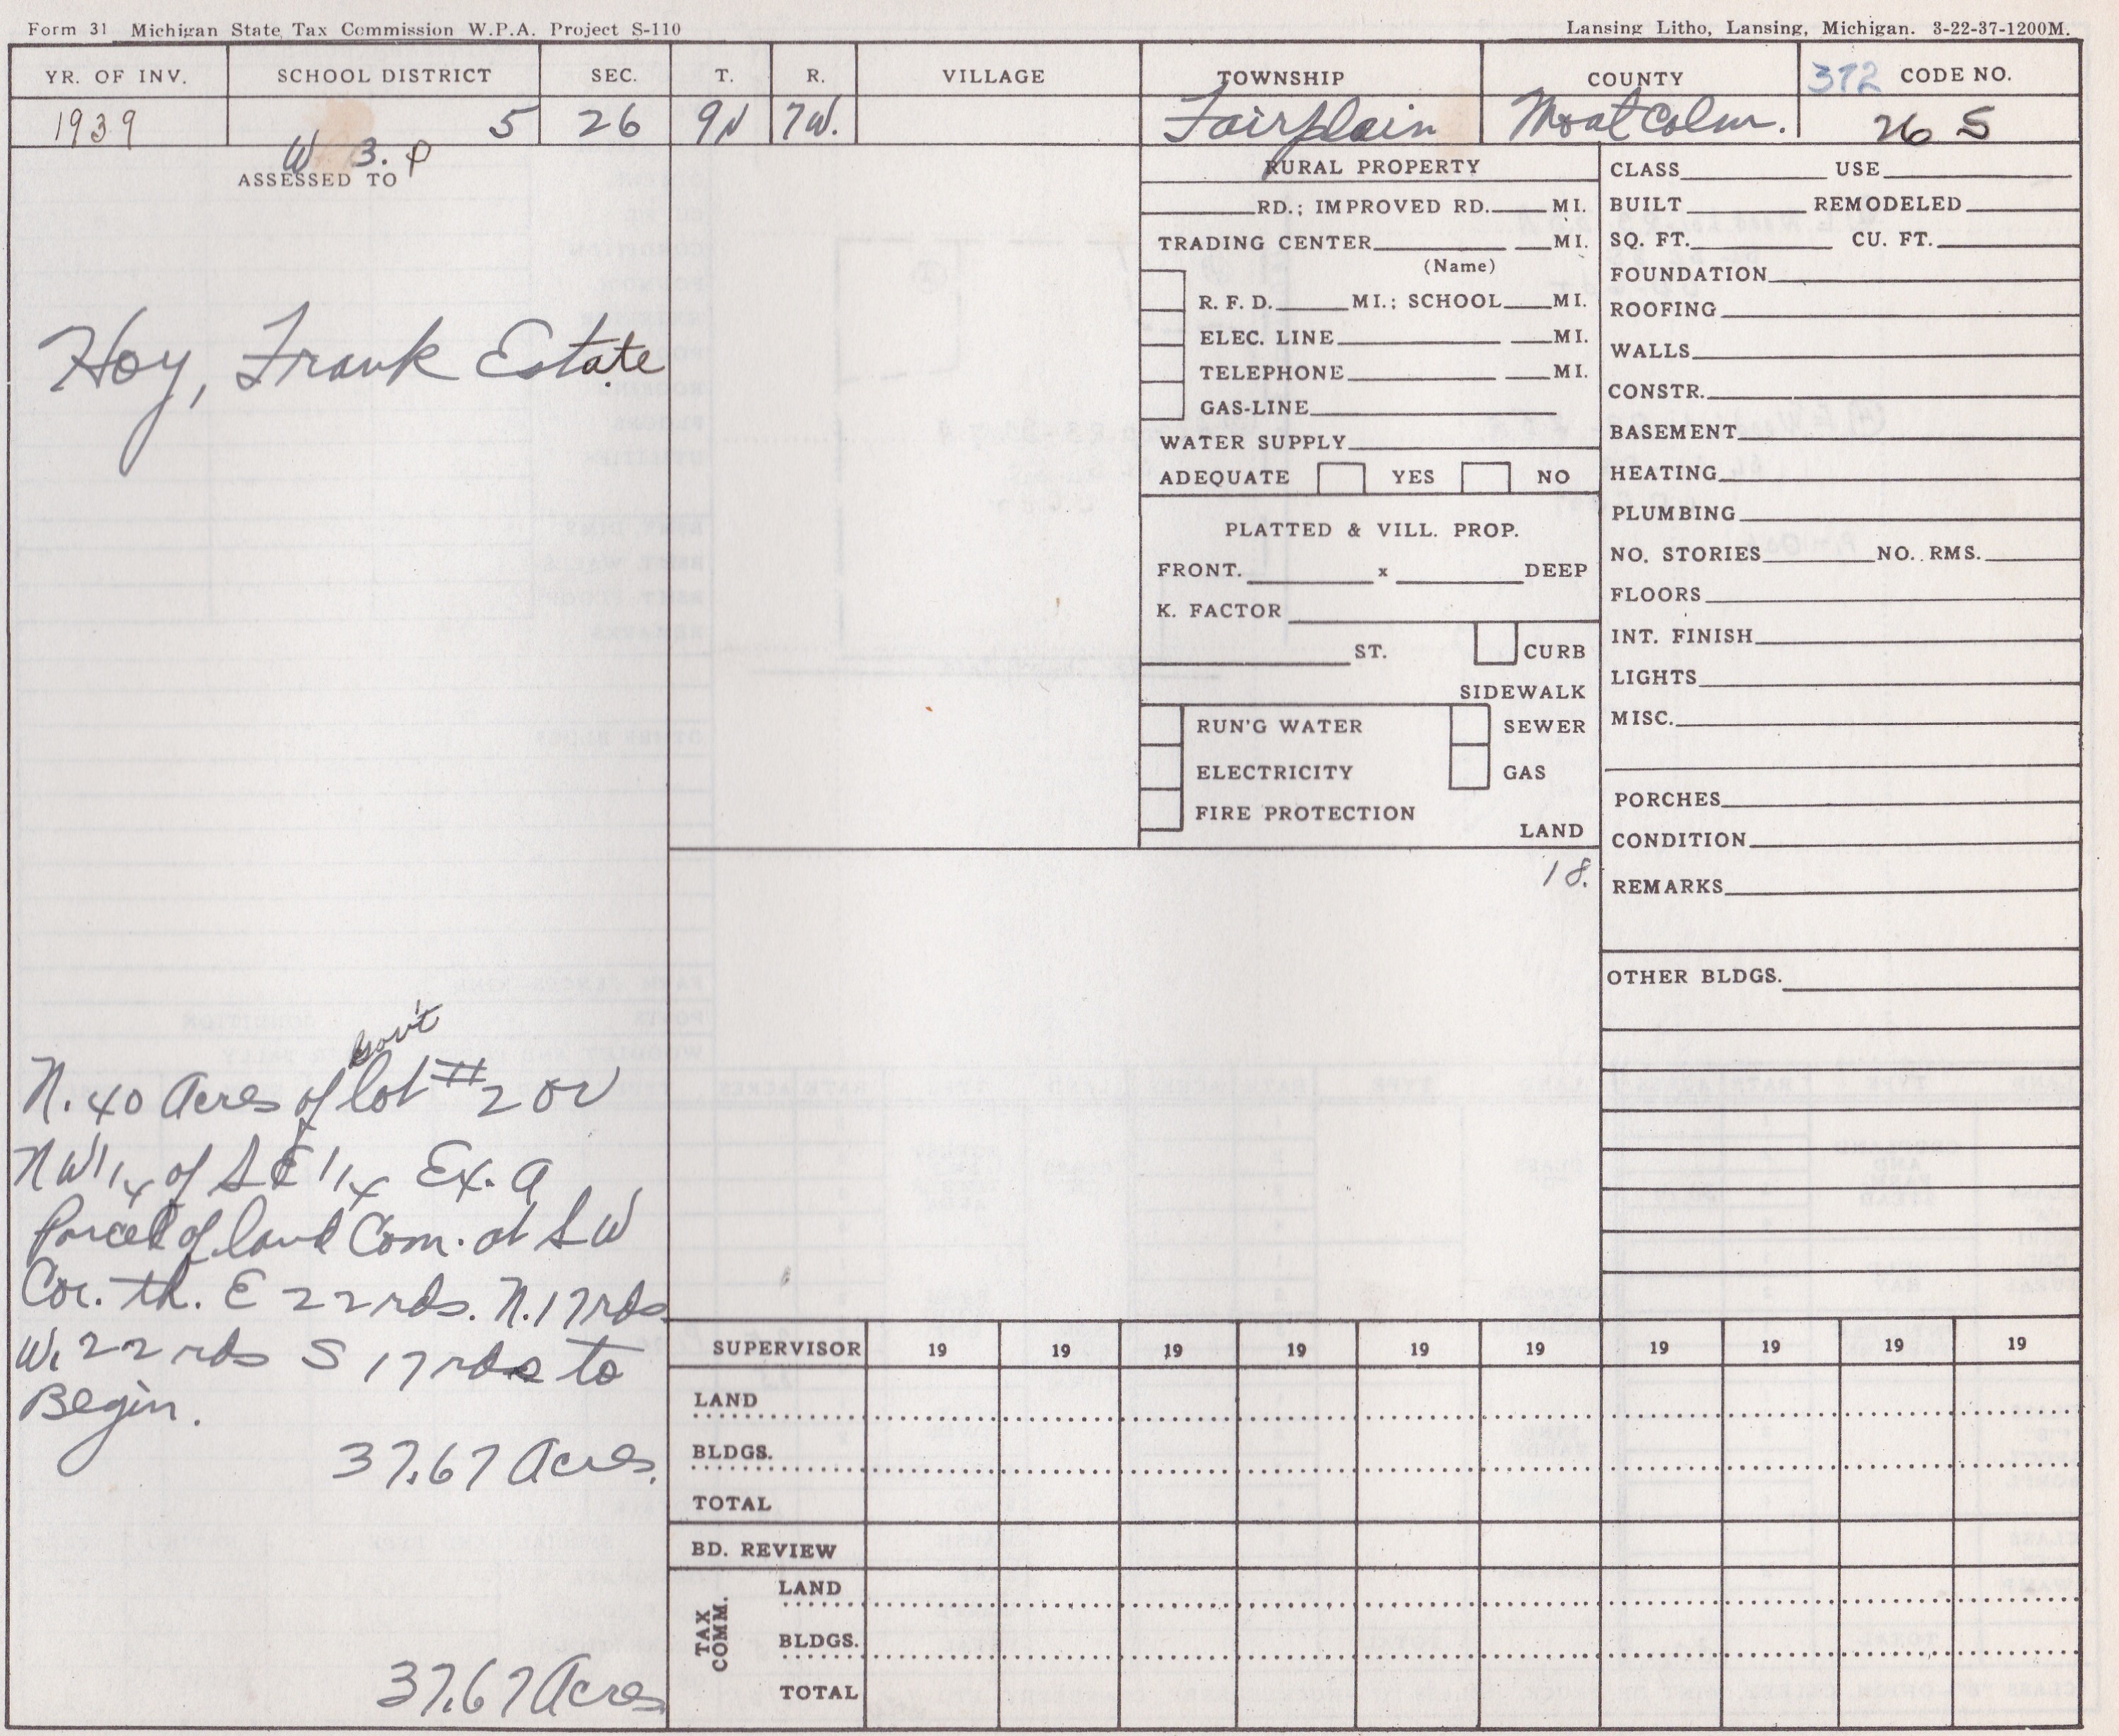 Form 31 Michigan State Tax Commission W.P.A. Project S-110
Lansing Litho, Lansing, Michigan. 3-22-37-1200M.
YR. OF INV. SCHOOL DISTRICT SEC. T. R. VILLAGE TOWNSHIP COUNTY 372 CODE NO.
1939 5 26 9N 7W. Fairplain Montcolm. 26 S
W 3. P
ASSESSED TO
Hoy, Frank Estate
Gov't
N. 40 Acres of lot #2 or
NW 1/4 of SE 1/4 Ex. a
Parcel of land Com. at SW
Cor. th. E 22 rds. N. 17 rds.
W. 22 rds S 17 rds to
Begin.
37.67 Acres.
37.67 Acres
RURAL PROPERTY
RD.; IMPROVED RD. MI.
TRADING CENTER MI.
(Name)
R. F. D. MI.; SCHOOL MI.
ELEC. LINE MI.
TELEPHONE MI.
GAS-LINE
WATER SUPPLY
ADEQUATE YES NO
PLATTED & VILL. PROP.
FRONT. x DEEP
K. FACTOR
ST. CURB
SIDEWALK
RUN'G WATER SEWER
ELECTRICITY GAS
FIRE PROTECTION
LAND
18.
CLASS USE
BUILT REMODELED
SQ. FT. CU. FT.
FOUNDATION
ROOFING
WALLS
CONSTR.
BASEMENT
HEATING
PLUMBING
NO. STORIES NO. RMS.
FLOORS
INT. FINISH
LIGHTS
MISC.
PORCHES
CONDITION
REMARKS
OTHER BLDGS.
SUPERVISOR 19 19 19 19 19 19 19 19 19 19
LAND
BLDGS.
TOTAL
BD. REVIEW
TAX COMM.
LAND
BLDGS.
TOTAL